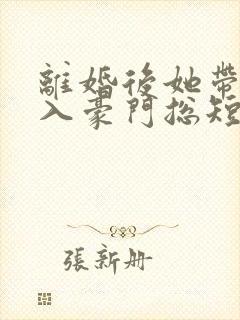 離婚後她帶
入豪門総短
張新册